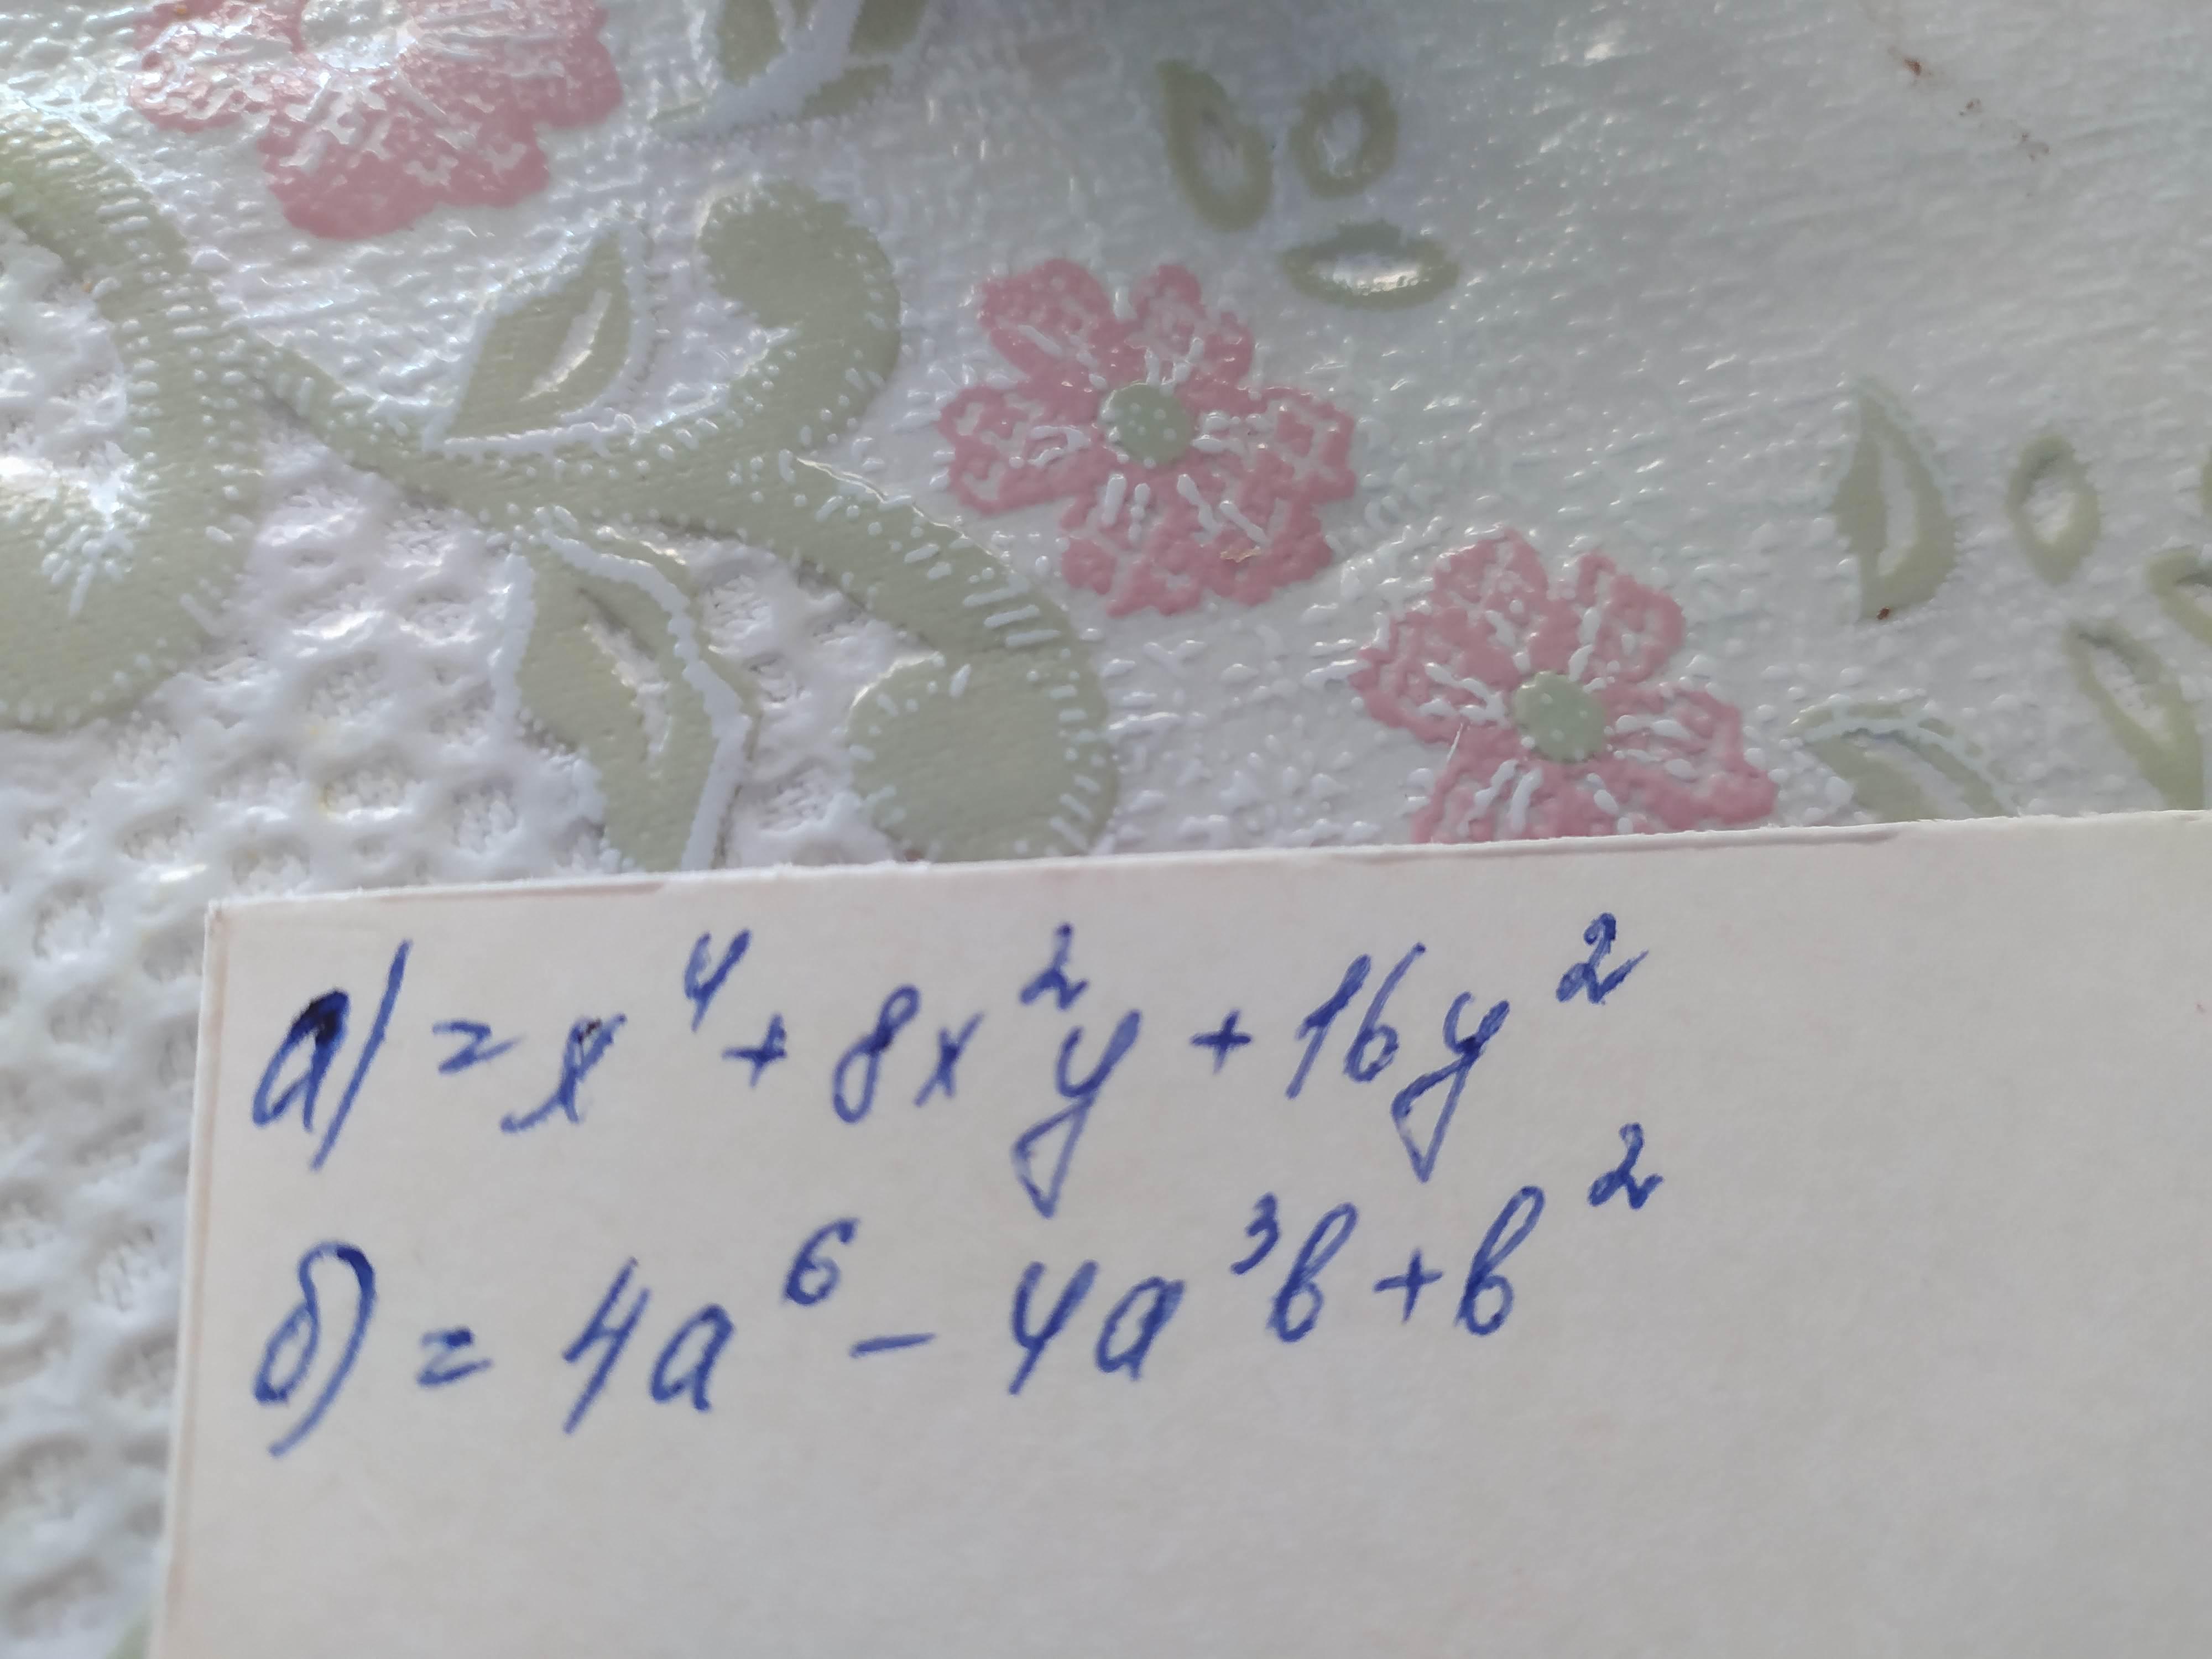 а) = x⁴ + 8x²y + 16y²
б) = 4a⁶ - 4a³b + b²